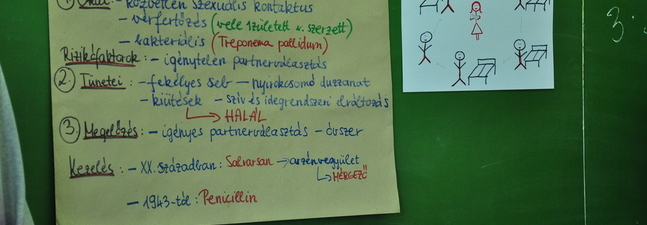 ① Okai: - közvetlen szexuális kontaktus
- vérfertőzés (vele született v. szerzett)
- bakteriális (Treponema pallidum)
Rizikófaktorok: - igénytelen partnerválasztás
② Tünetei: - fekélyes seb - nyirokcsomó duzzanat
- kiütések - szív és idegrendszeri elváltozás
→ HALÁL
③ Megelőzés: - igényes partnerválasztás - óvszer
Kezelés: - XX. században: Salvarsan → arzénvegyület
→ MÉRGEZŐ
- 1943-tól: Penicillin
3.